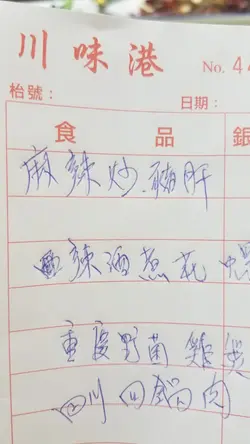 川味港
No. 44
枱號： 日期：
食品 銀
麻辣炒豬肝
辣酒煮花
重慶野菌雞煲
四川回鍋肉